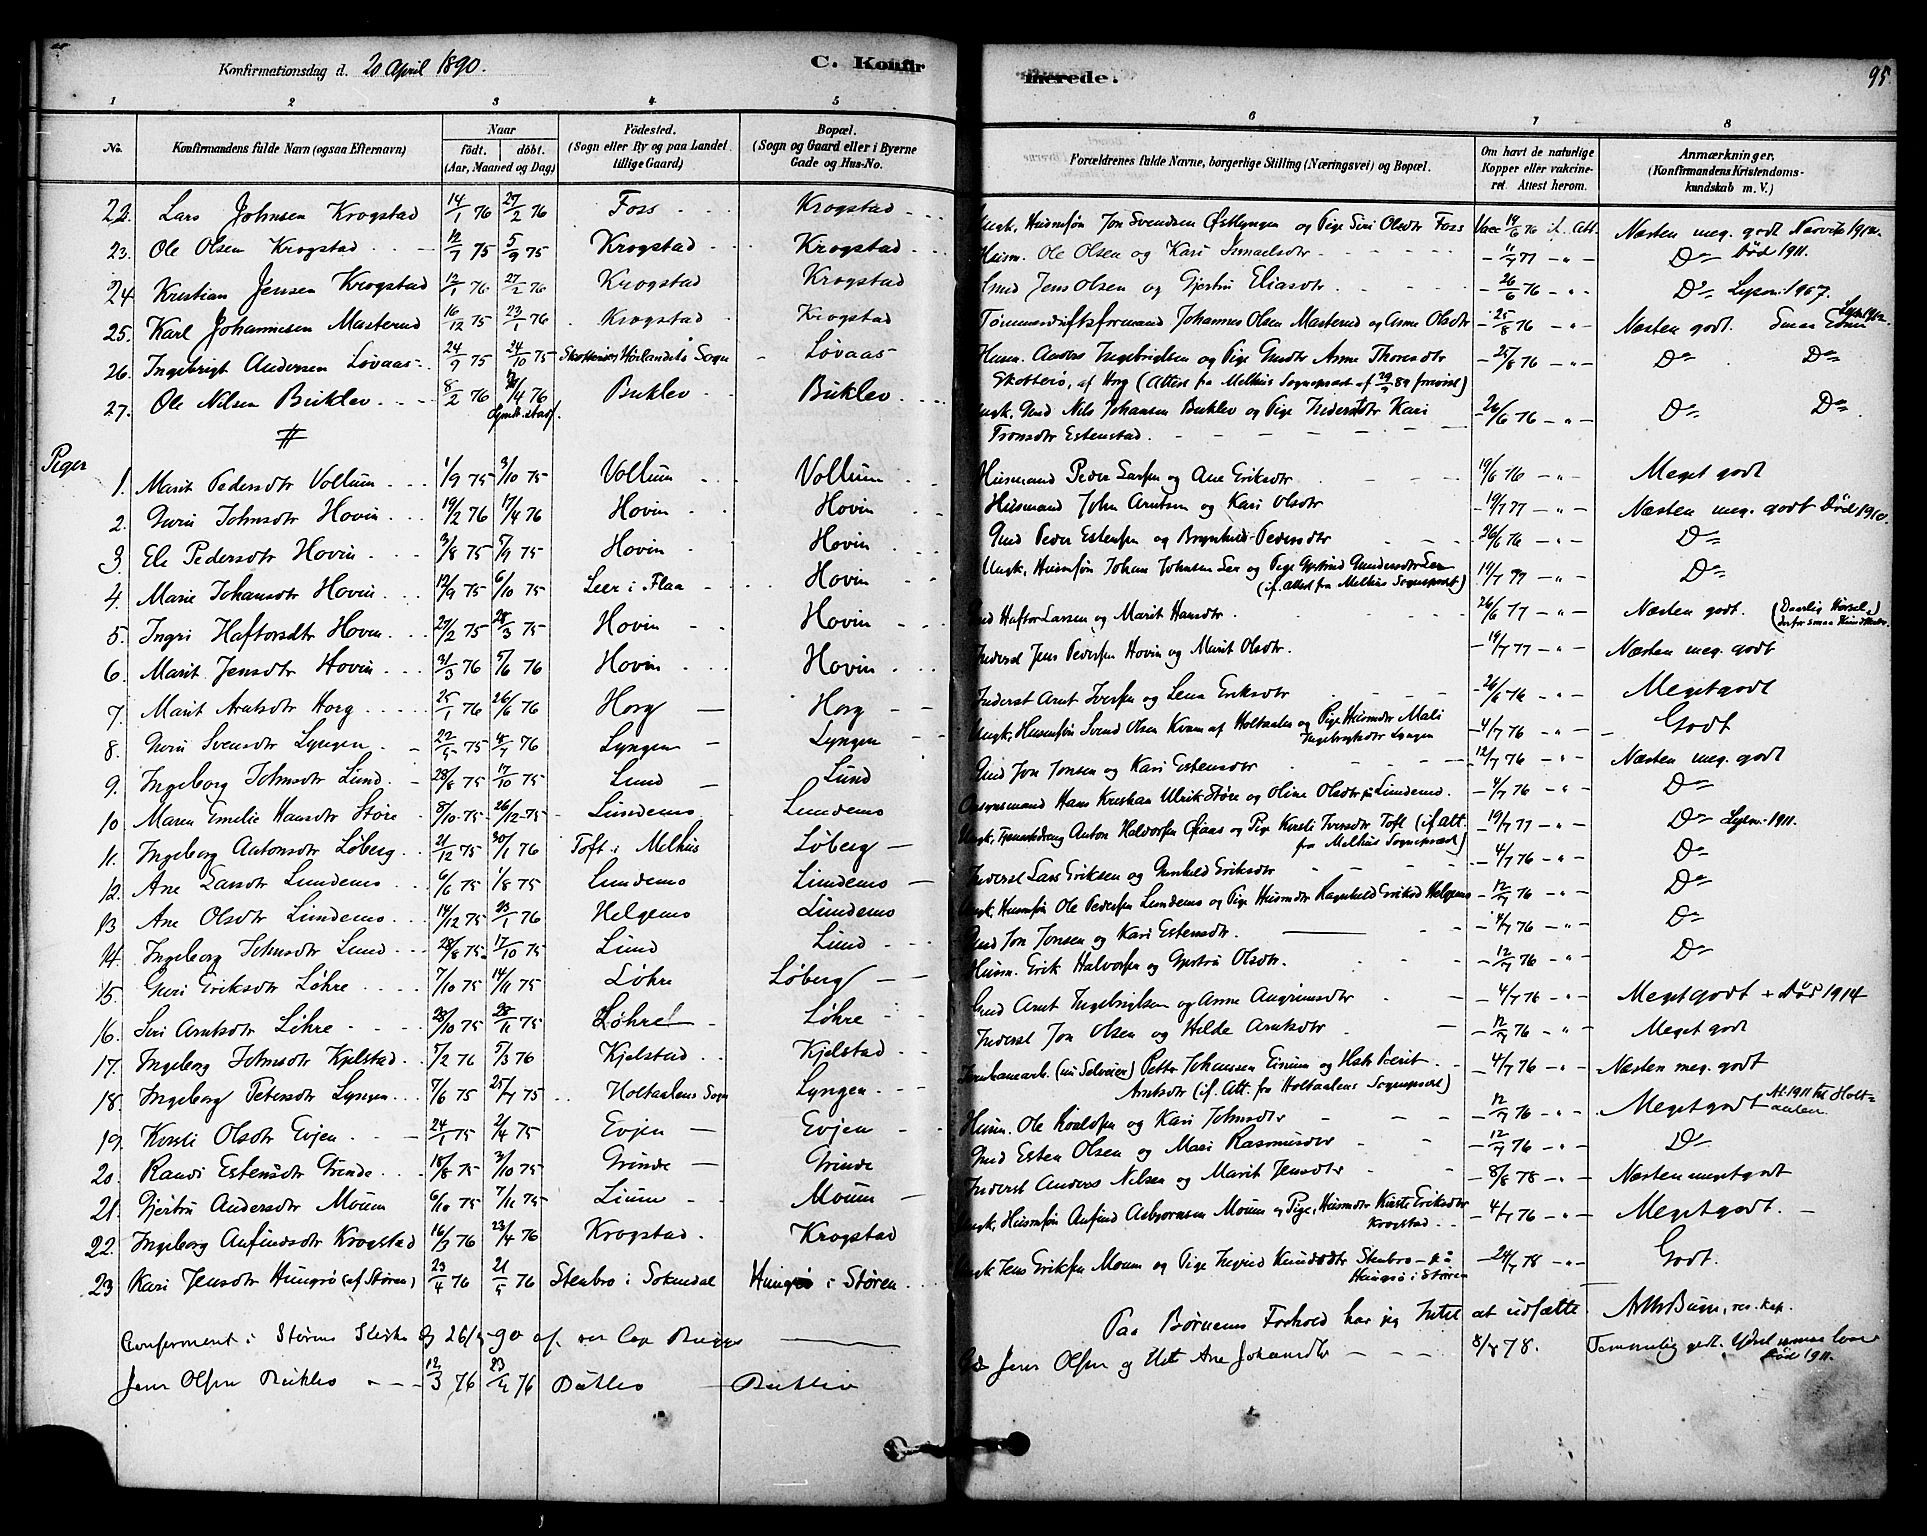 Konfirmationsdag d. 20 April 1890. C. Konfir merede. 95
1 2 3 4 5 6 7 8
No. Konfirmandens fulde Navn (ogsaa Efternavn) Naar födt. döbt. (Aar, Maaned og Dag) Födested. (Sogn eller By og paa Landet tillige Gaard) Bopæl. (Sogn og Gaard eller i Byerne Gade og Hus-No. Forældrenes fulde Navne, borgerlige Stilling (Næringsvei) og Bopæl. Om havt de naturlige Kopper eller vakcineret. Attest herom. Anmærkninger. (Konfirmandens Kristendomskundskab m. V.)
22. Lars Johnsen Krogstad 14/1 76 27/2 76 Foss Krogstad Ungk. Huusm.søn Jon Svendsen Østlyngen og Pige Siri Olsdtr Foss Vacc 19/6 76 if. Att. Næsten meg. godt Narvik 1912.
23. Ole Olsen Krogstad 12/7 75 5/9 75 Krogstad Krogstad Husm. Ole Olsen og Kari Ismaelsdtr - 11/7 77 - " - Do Død 1911.
24 Kristian Jensen Krogstad 12/1 76 27/2 76 Krogstad Krogstad Gmd Jens Olsen og Gjertru Eliasdtr - 26/6 76 - " - Do
25. Karl Johannesen Masterud 16/12 75 23/1 76 Krogstad Krogstad Tømmerdriftsformand Johannes Olsen Masterud og Anne Olsdtr - 25/8 76 - " - Næsten godt. Smaa Evner
26. Ingebrigt Andersen Løvaas 24/9 75 24/10 75 Hølandets Sogn Løvaas Husm. Anders Ingebrigtsen og Pige Gmdtr Anne Thoresdtr - 25/8 76 - " - Do Do
Skotterø, af Horg (Attest fra Melhus Sognepræst af 29/9 89 forevist)
27. Ole Nilsen Buklev 8/2 76 /4 76 Buklev Buklev Ungk. Gmd Nils Johansen Buklev og Pige Inderstdtr Kari - 26/6 76 - " - Do Do
Tronsdtr Estenstad.
Piger
1. Marit Pedersdtr Vollum 1/9 75 3/10 75 Vollum Vollum Husmand Peder Larsen og Ane Eriksdtr - 19/6 76 - " - Meget godt
2. Guru Johnsdtr Hovin 19/2 76 17/4 76 Hovin Hovin Husmand John Arntsen og Kari Olsdtr - 19/7 77 - " - Næsten meg. godt Død 1910.
3. Ele Pedersdtr Hovin 3/8 75 5/9 75 Hovin Hovin Gmd Peder Estensen og Brynhild Pedersdtr - 26/6 76 - " - Do
4. Marie Johansdtr Hovin 19/9 75 6/10 75 Leer i Flaa Hovin Ungk. Husm.søn Johan Johnsen Leer og Pige Gjertrud Gundersdtr Leer - 19/7 77 - " - Do
(if. attest fra Melhus Sognepræst)
5. Ingri Haftorsdtr Hovin 27/2 75 28/3 75 Hovin Hovin Gmd Haftor Larsen og Marit Hansdtr. - 26/6 77 - " - Næsten godt. (Daarlig Hørsel, derfor smaa Kundskaber
6. Marit Jensdtr Hovin 31/3 76 5/6 76 Hovin Hovin Inderst Jens Pedersen Hovin og Marit Olsdtr. - 19/7 77 - " - Næsten meg. godt
7. Marit Arntsdtr Horg 25/1 76 26/6 76 Horg Horg Inderst Arnt Iversen og Lena Eriksdtr - 26/6 76 - " - Meget godt
8. Guru Svensdtr Lyngen 22/5 75 4/7 76 Lyngen Lyngen Ungk. Husm.søn Svend Olsen Kvam af Holtaalen og Pige Husmdtr Mali - 4/7 76 - " - Godt
Ingebrigtsdtr Lyngen
9. Ingeborg Johnsdtr Lund 28/8 75 17/10 75 Lund Lund Gmd Jon Jonsen og Kari Estensdtr - 12/7 76 - " - Næsten meg. godt
10 Maren Emelie Hansdtr Støre 8/10 75 26/12 75 Lundemo Lundemo Opsynsmand Hans Kristian Ulrik Støre og Oline Olsdtr Lundemo. - 4/7 76 - " - Do
11. Ingeborg Antonsdtr Løberg 21/12 75 30/1 76 Toft i Melhus Løberg Ungk. Anton Halvorsen Øiaas og Pige Kirsti Iversdtr Toft (if att. - 19/7 77 - " - Do 1911.
fra Melhus Sognepræst)
12. Ane Larsdtr Lundemo 6/6 75 1/8 75 Lundemo Lundemo Inderst Lars Eriksen og Gunhild Eriksdtr - 4/7 76 - " - Do
13 Ane Olsdtr Lundemo 14/12 75 23/1 76 Helgemo Lundemo Ungk. Husm.søn Ole Pedersen Lundemo og Pige Husmdtr Ragnhild Eriksd Helgemo - 12/7 76 - " - Do
14. Ingeborg Johnsdtr Lund 28/8 75 17/10 75 Lund Lund Gmd Jon Jonsen og Kari Estensdtr. - 4/7 76 - " - Do
15. Guri Eriksdtr Løhre 7/10 75 14/11 75 Løhre Løberg Husm. Erik Halvorsen og Gjertru Olsdtr. - 12/7 76 - " - Do
16. Siri Arntsdtr Løhre 23/10 75 28/11 75 Løhre Løhre Gmd Arnt Ingebrigtsen og Anne Angrimsdtr - 4/7 76 - " - Meget godt + Død 1914
17. Ingeborg Johnsdtr Kjelstad 5/2 76 5/3 76 Kjelstad Kjelstad Inderst Jon Olsen og Hilde Arntsdtr - 12/7 76 - " - Meget godt
18. Ingeborg Petersdtr Lyngen 7/6 75 25/7 75 Holtaalens Sogn Lyngen Jernbanearb. (nu Selveier) Petter Johansen Eisum og Hstr Berit - 4/7 76 - " - Næsten meg. godt
Arntsdtr (if. Att. fra Holtaalens Sognepræst)
19. Kirsti Olsdtr Evjen 24/1 75 2/4 75 Evjen Evjen Husm. Ole Roaldsen og Kari Johnsdtr - 12/7 76 - " - Meget godt At. 1911 til Holtaalen.
20. Randi Estensdtr Grinde 18/8 75 3/10 75 Grinde Grinde Gmd Esten Olsen og Mari Rasmusdtr - 12/7 76 - " - Do
21. Gjertru Andersdtr Moum 6/10 75 7/11 75 Lium Moum Inderst Anders Nilsen og Marit Jensdtr - 8/8 78 - " - Næsten meget godt
22. Ingeborg Anfindsdtr Krogstad 16/3 76 23/4 76 Krogstad Krogstad Ungk. Husm.søn Anfind Asbjørnsen Moum og Pige, Husmdtr Kirsti Eriksdtr - 4/7 76 - " - Meget godt.
Krogstad
23 Kari Jensdtr Hungrø (af Støren) 23/4 76 21/5 76 Stenbro i Soknedal Hungrø i Støren Ungk Jens Eriksen Moum og Pige Ingrid Knudsdtr Stenbro - 24/7 78 - " - Godt.
Hungrø i Støren
Paa Børnenes Forhold har jeg Intet at udsætte A Th Bum, res. kap.
Confirment i Størens Kirke 26/ 90 af res Cap
Jens Olsen Buklev 12/3 76 23/4 76 Buklev Buklev Gd Jens Olsen og Hst Ane Johansdtr 8/8 78. Temmelig godt. Død 1911.